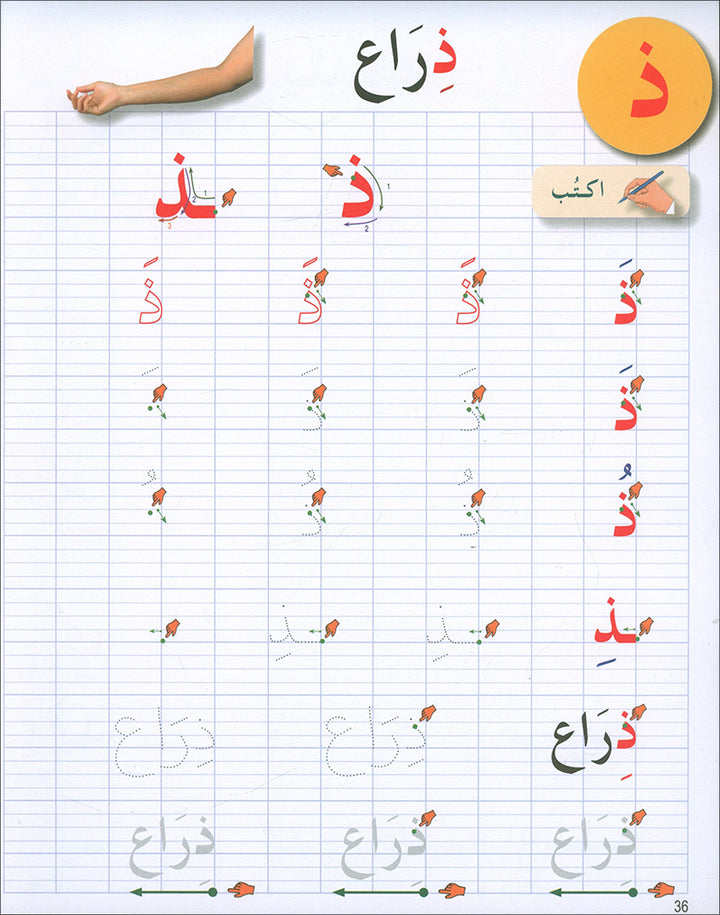 ذ ذِرَاع
اكتُب
ذ 1 2 ـذ 1 2 3
ذَ ذَ ذَ ذَ
ذَ ذَ ذَ َ
ذُ ذُ ذُ ُ
ـذِ ـذِ ـذِ
ذِرَاع ذِرَاع ذِرَاع
ذِرَاع ذِرَاع ذِرَاع
36